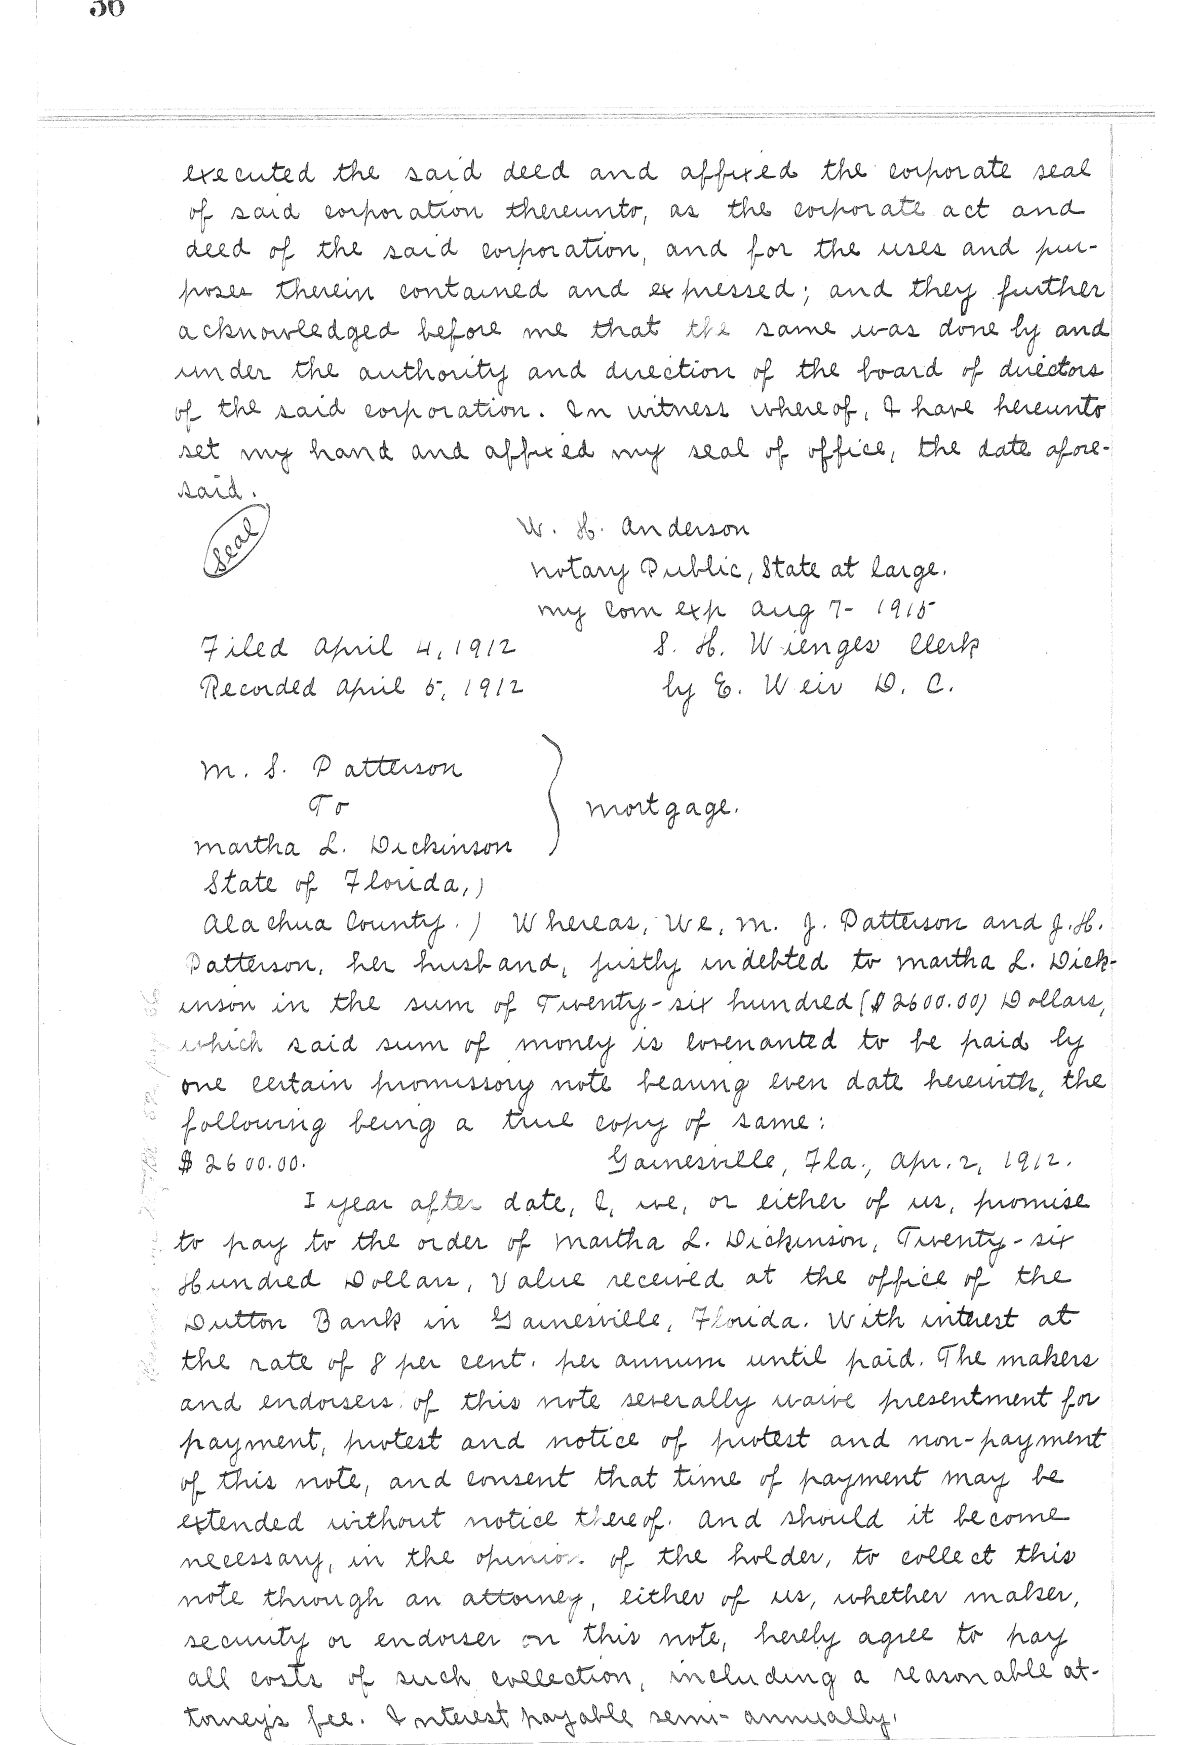 56
executed the said deed and affixed the corporate seal
of said corporation thereunto, as the corporate act and
deed of the said corporation, and for the uses and pur-
poses therein contained and expressed; and they further
acknowledged before me that the same was done by and
under the authority and direction of the board of directors
of the said corporation. In witness whereof, I have hereunto
set my hand and affixed my seal of office, the date afore-
said.
Seal
W. H. Anderson
Notary Public, State at large.
My Com exp Aug 7- 1915
Filed April 4, 1912 S. H. Wienges Clerk
Recorded April 5, 1912 by E. Weir D. C.
M. S. Patterson
To
Mortgage.
Martha L. Dickinson
State of Florida,)
Alachua County.) Whereas, We, M. J. Patterson and J. H.
Patterson, her husband, justly indebted to Martha L. Dick-
inson in the sum of Twenty-six hundred ($2600.00) Dollars,
which said sum of money is covenanted to be paid by
one certain promissory note bearing even date herewith, the
following being a true copy of same:
$2600.00. Gainesville, Fla., Apr. 2, 1912.
I year after date, I, we, or either of us, promise
to pay to the order of Martha L. Dickinson, Twenty-six
Hundred Dollars, Value received at the office of the
Dutton Bank in Gainesville, Florida. With interest at
the rate of 8 per cent. per annum until paid. The makers
and endorsers of this note severally waive presentment for
payment, protest and notice of protest and non-payment
of this note, and consent that time of payment may be
extended without notice thereof. And should it become
necessary, in the opinion of the holder, to collect this
note through an attorney, either of us, whether maker,
security or endorser on this note, herely agree to pay
all costs of such collection, including a reasonable at-
torney's fee. Interest payable semi-annually.